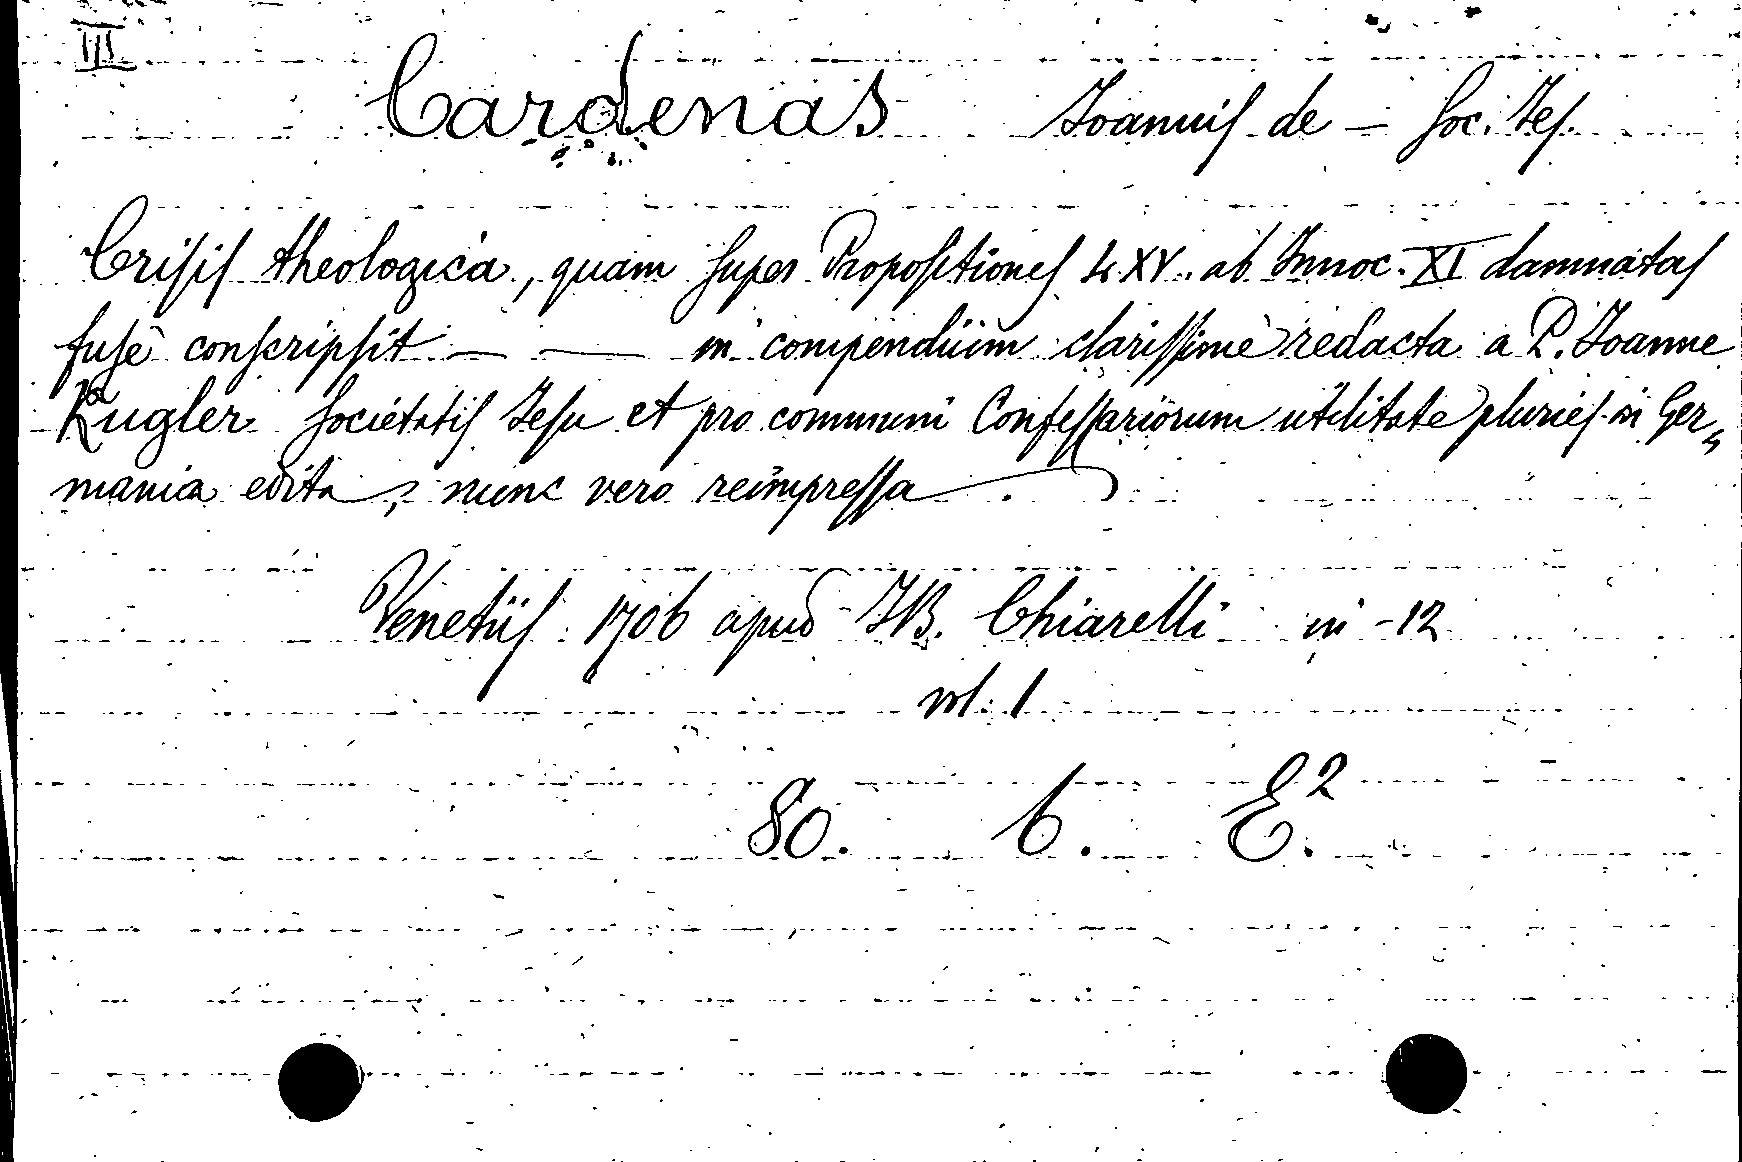 III
Cardenas Joannis de — Soc. Jes.
Crisis theologica, quam super Propositiones LXV. ab Innoc. XI damnatas
fusè conscripsit — — in compendium clarissimè redacta a P. Joanne
Kugler Societatis Jesu et pro communi Confessariorum utilitate pluries in Ger„
mania edita, nunc vero reimpressa.
Venetiis 1706 apud J.B. Chiarelli in-12
vol. 1
80. 6. E².